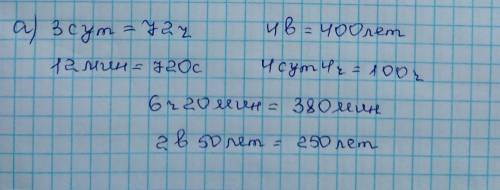 а) 3 сут = 72 ч 4 в = 400 лет
12 мин = 720 с 4 сут 4 ч = 100 ч
6 ч 20 мин = 380 мин
2 в 50 лет = 250 лет